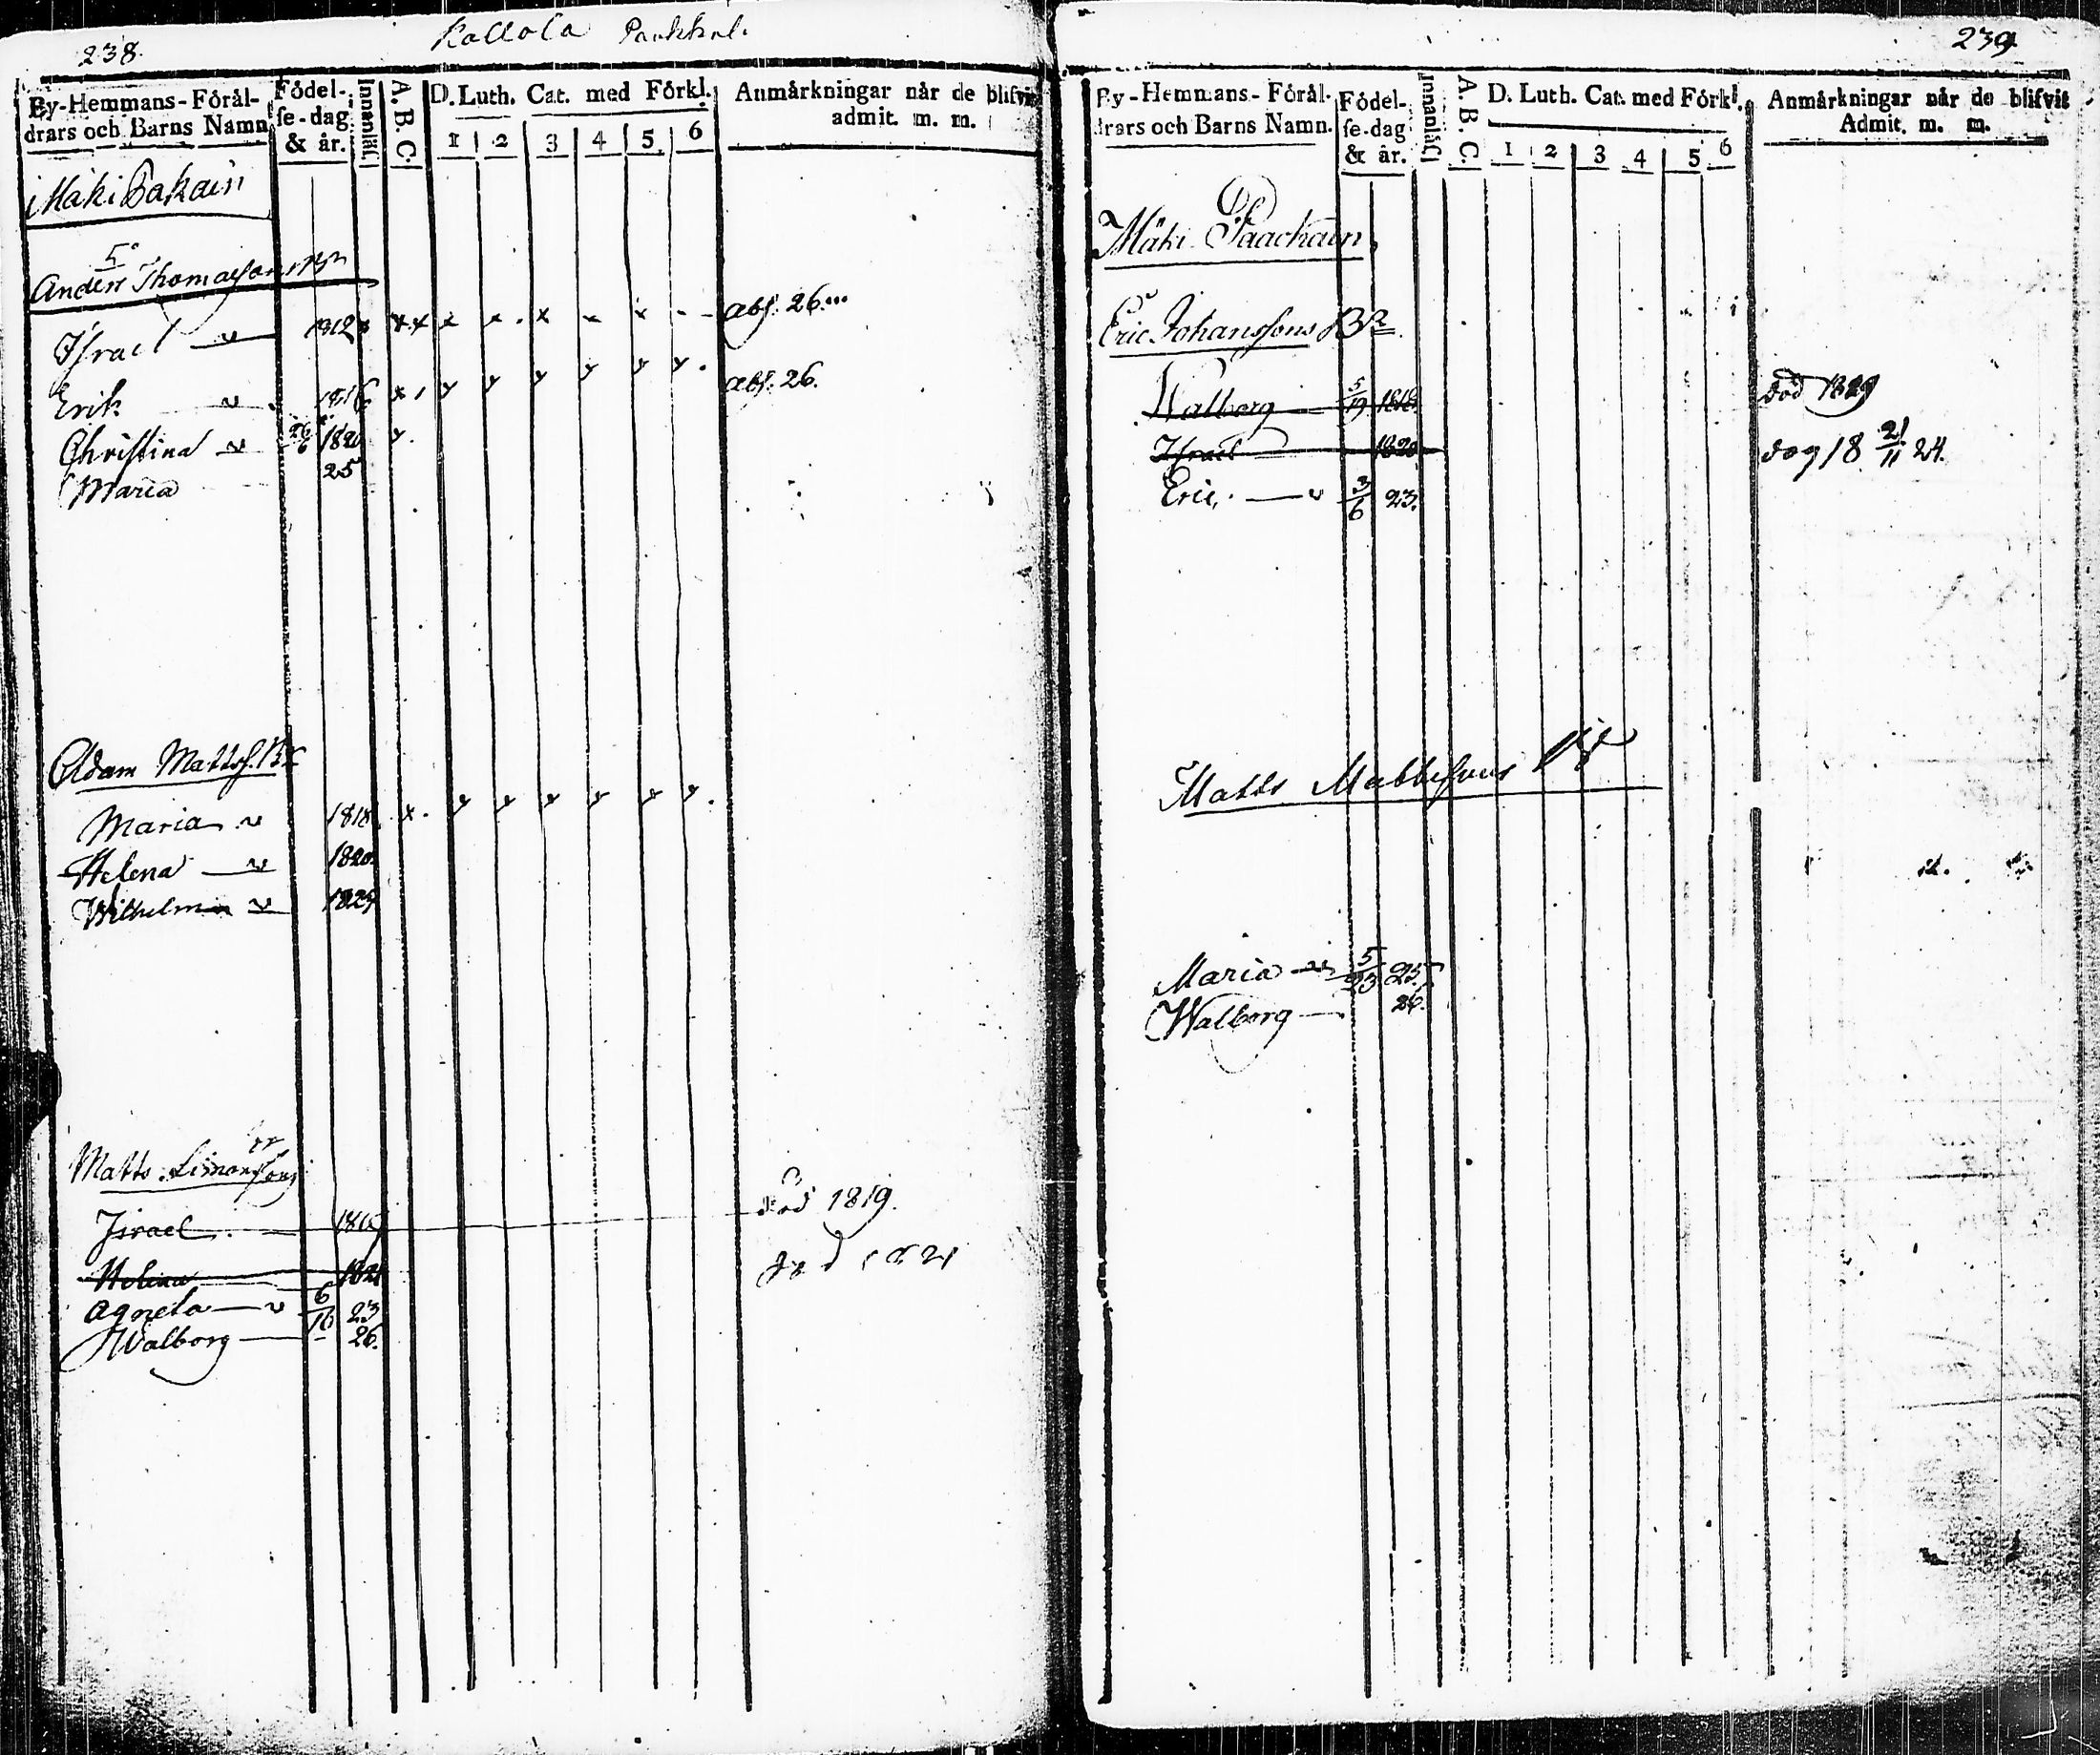 238.
Kallola Paakkol.
By-Hemmans-Förål- Födel- Innanläs. A. B. C. D. Luth. Cat. med Förkl. Anmårkningar når de blifvit
drars och Barns Namn se-dag 1 2 3 4 5 6 admit. m. m.
& år.
Mäki Pakain
Anders Thomassons Bn
Israel v 1812 x x x x x x x abs. 26.
Erik v 1816 x 1 y y y y y y. abs. 26.
Christina v 26/6 1820 y.
Maria 25
Adam Mattss. Br
Maria v 1818 x. y y y y y y.
Helena v 1820
Wilhelm v 1824
Matts Simonssons br
Israel 1815 död 1819.
Helena 1821 död 1821
Agneta v 6/16 23
Walborg 26.
239
By-Hemmans-Förål- Födel- Innanläs. A. B. C. D. Luth. Cat. med Förkl. Anmårkningar når de blifvit
drars och Barns Namn. se-dag 1 2 3 4 5 6 Admit. m. m.
& år.
Mäki Paackain
Eric Johanssons Bn
Walborg 5/19 1818 död 1819
Israel 1820 dog 18 21/11 24.
Eric. v 3/6 23.
Matts Mattssons
Maria v 5/23 25
Walborg 26.